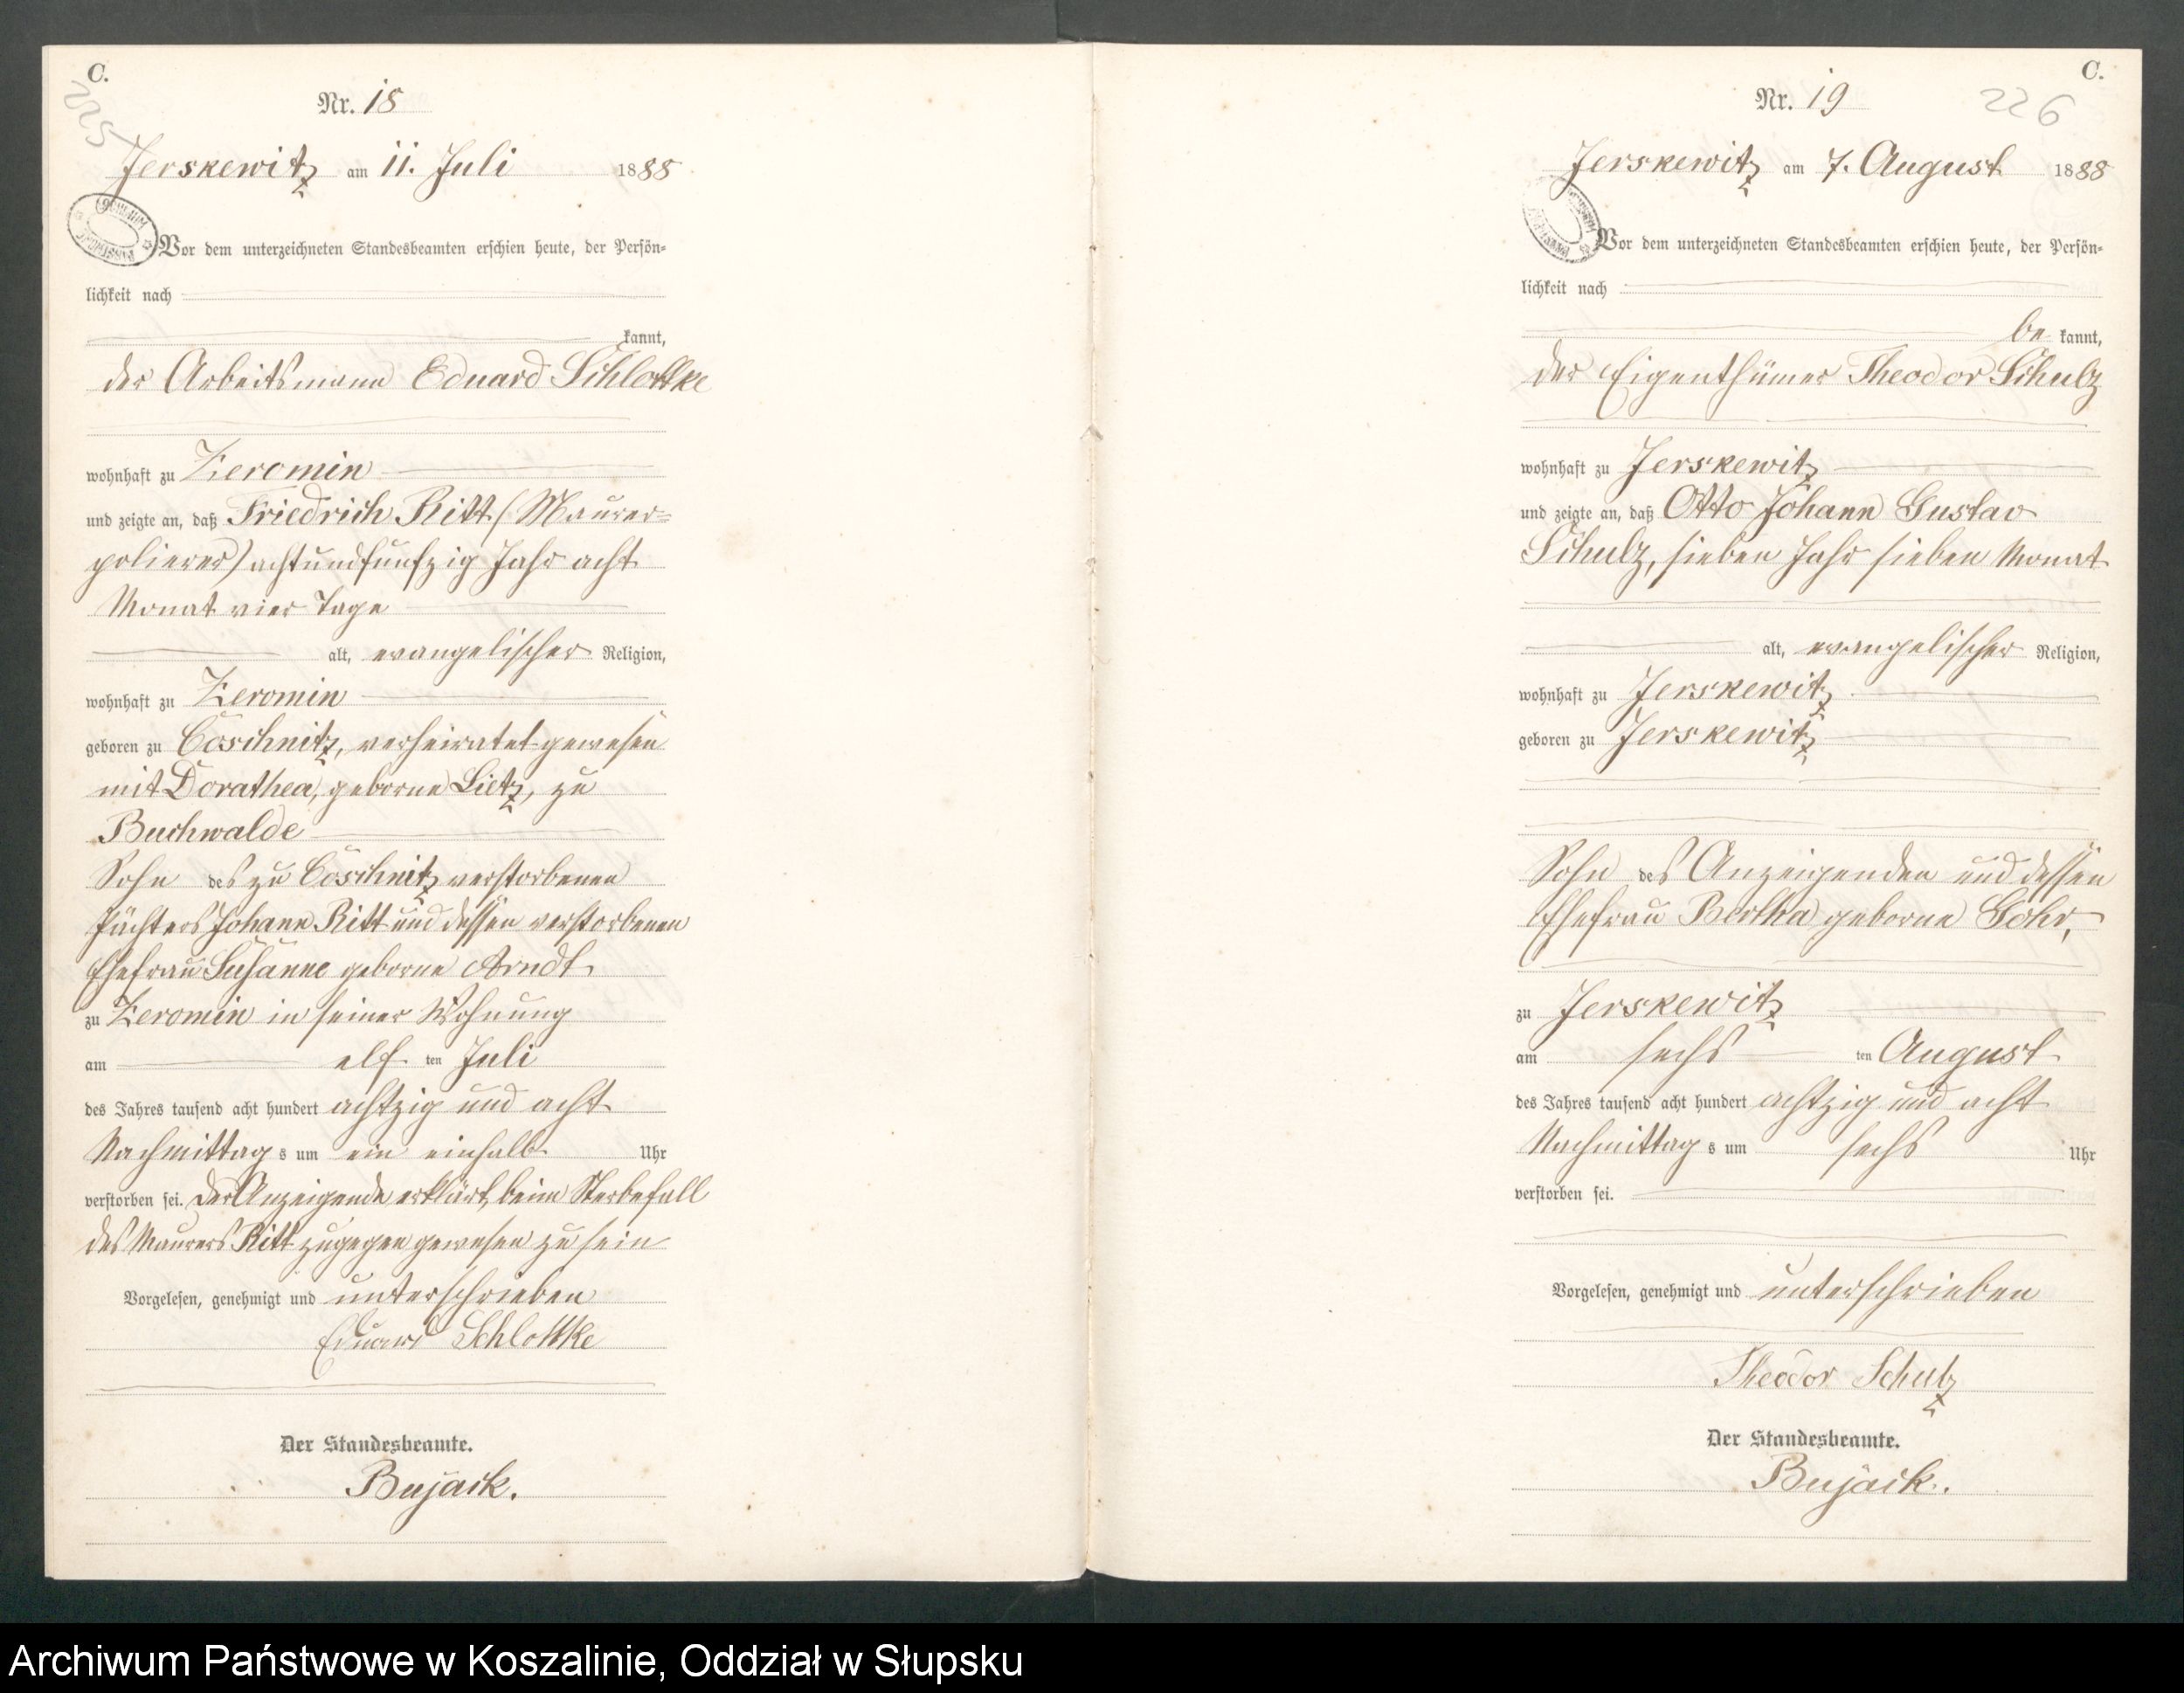 C.
225
Nr. 18
Jerskewitz am 11. Juli 1888
Vor dem unterzeichneten Standesbeamten erschien heute, der Persön-
lichkeit nach
kannt,
der Arbeitsmann Eduard Schlottke
wohnhaft zu Zeromin
und zeigte an, daß Friedrich Ritt (Maurer-
polierer) achtundfünfzig Jahr acht
Monat vier Tage
alt, evangelischer Religion,
wohnhaft zu Zeromin
geboren zu Cöschnitz, verheiratet gewesen
mit Dorathea, geborne Lietz, zu
Buchwalde
Sohn des zu Cöschnitz verstorbenen
Pächters Johann Ritt und dessen verstorbenen
Ehefrau Susanne geborne Arndt
zu Zeromin in seiner Wohnung
am elf ten Juli
des Jahres tausend acht hundert achtzig und acht
Nachmittag s um ein einhalb Uhr
verstorben sei. Der Anzeigende erklärt, beim Sterbefall
des Maurers Ritt zugegen gewesen zu sein
Vorgelesen, genehmigt und unterschrieben
Eduard Schlottke
Der Standesbeamte.
Bujack.
C.
226
Nr. 19
Jerskewitz am 7. August 1888
Vor dem unterzeichneten Standesbeamten erschien heute, der Persön-
lichkeit nach
be kannt,
der Eigenthümer Theodor Schulz
wohnhaft zu Jerskewitz
und zeigte an, daß Otto Johann Gustav
Schulz, sieben Jahr sieben Monat
alt, evangelischer Religion,
wohnhaft zu Jerskewitz
geboren zu Jerskewitz
Sohn des Anzeigenden und dessen
Ehefrau Bertha geborne Gohr,
zu Jerskewitz
am sechs ten August
des Jahres tausend acht hundert achtzig und acht
Nachmittag s um sechs Uhr
verstorben sei.
Vorgelesen, genehmigt und unterschrieben
Theodor Schulz
Der Standesbeamte.
Bujack.
Archiwum Państwowe w Koszalinie, Oddział w Słupsku